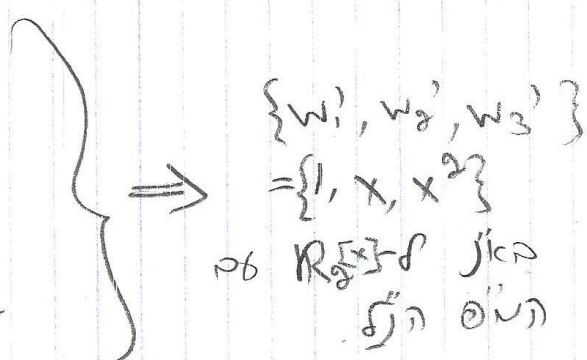 {w₁', w₂', w₃'}
={1, x, x²}
בא"ן ל-ℝ₂[x] עם
המ"פ הנ"ל